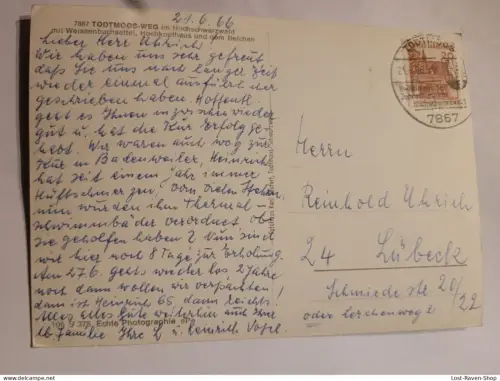 21.6.66
7867 TODTMOOS-WEG im Hochschwarzwald
mit Weissenbachsattel, Hochkopfhaus und dem Belchen
Lieber Herr Uhrich!
Wir haben uns sehr gefreut
daß Sie uns nach langer Zeit
wieder einmal ausführlicher
geschrieben haben. Hoffentl.
geht es Ihnen inzwischen wieder
gut u. hat die Kur Erfolg ge-
habt. Wir waren auch weg zur
Kur in Badenweiler, Heinrich
hat seit einem Jahr immer
Hüftschmerzen, vom vielen
nun wurden ihm Thermal-
schwimmbäder verordnet ob
sie geholfen haben? Nun sind
wir hier noch 8 Tage zur Erholung.
Am 27.6. gehts wieder los 2 Jahre
noch dann wollen wir verpachten!
ist Heinrich 65, dann reichts!
Alles alles Gute weiterhin auch Ihrer
lb. Familie Ihre L. u. Heinrich Vogel.
106 9 375 Echte Photographie
7867
Herrn
Reinhold Uhrich
24 Lübeck
Schmiedestr 20/22
oder Lerchenweg 2
Lost-Raven-Shop